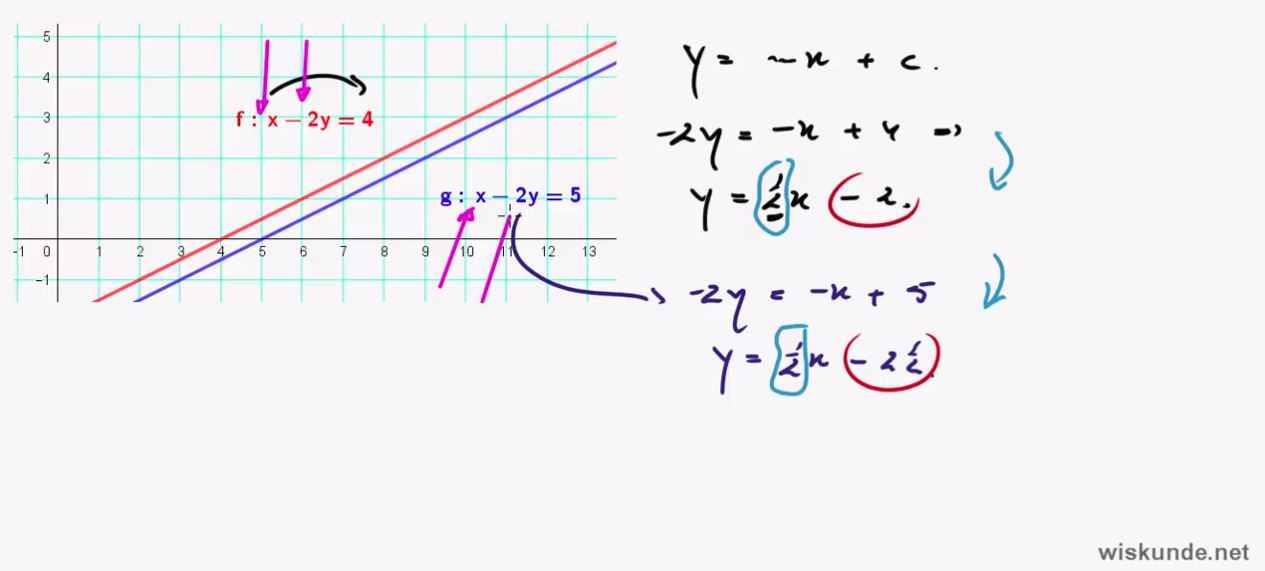 5
4
3
2
1
-1
-1 0 1 2 3 4 5 6 7 8 9 10 11 12 13
f : x − 2y = 4
g : x − 2y = 5
y = ~x + c.
-2y = -x + 4 =>
y = ½x - 2.
-2y = -x + 5
y = ½x - 2½
wiskunde.net